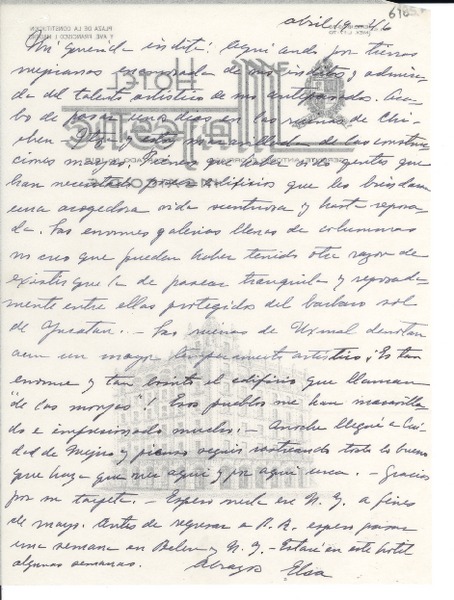 abril 19 - 46
Mi querida indita: Aquí ando por tierras
mejicanas enamorada de sus inditos y admira-
da del talento artístico de sus antepasados. Aca-
bo de pasar unos días en las ruinas de Chi-
chen Itza y estoy maravillada de las construc-
ciones mayas. Tienen que haber sido gentes que
han necesitado para edificios que les brindaran
una acogedora vida venturosa y hasta reposa-
da. Las enormes galerías llenas de columnas
no creo que puedan haber tenido otra razón de
existir que la de pasear tranquila y reposada-
mente entre ellas protegidos del barbaro sol
de Yucatan. - Las ruinas de Uxmal denotan
aun un mayor temperamento artístico. ¡Es tan
enorme y tan bonito el edificio que llaman
"de las monjas"! Esos pueblos me han maravilla-
do e impresionado mucho. - Anoche llegué a Ciu-
dad de Mejico y pienso seguir rastreando todo lo bueno
que haya que ver aquí y por aquí cerca. - Gracias
por su tarjeta. - Espero verla en N. Y. a fines
de mayo. Antes de regresar a P. R. espero pasar
una semana en Belen y N. Y. - Estaré en este hotel
algunas semanas. Abrazos Elsa